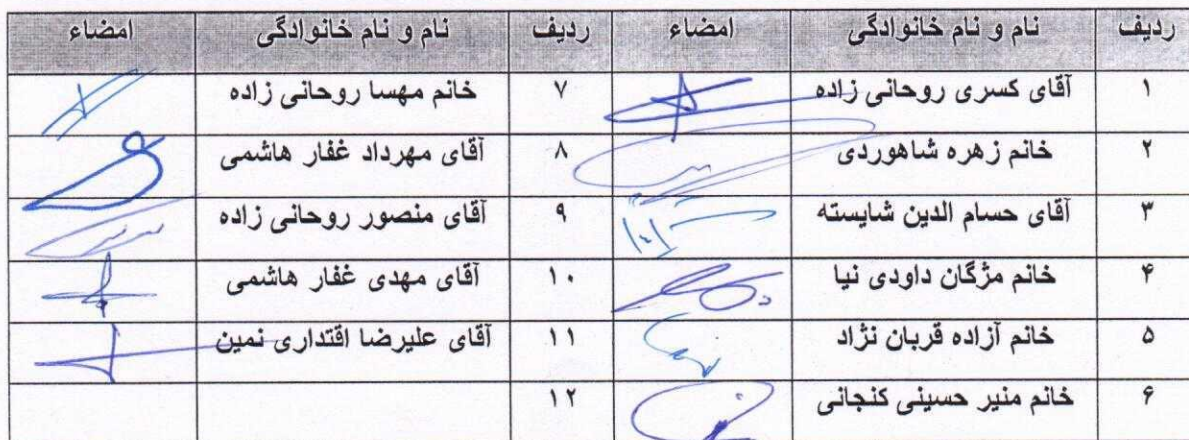 ردیف نام و نام خانوادگی امضاء ردیف نام و نام خانوادگی امضاء
۱ آقای کسری روحانی زاده ۷ خانم مهسا روحانی زاده
۲ خانم زهره شاهوردی ۸ آقای مهرداد غفار هاشمی
۳ آقای حسام الدین شایسته ۹ آقای منصور روحانی زاده
۴ خانم مژگان داودی نیا ۱۰ آقای مهدی غفار هاشمی
۵ خانم آزاده قربان نژاد ۱۱ آقای علیرضا اقتداری نمین
۶ خانم منیر حسینی کنجانی ۱۲